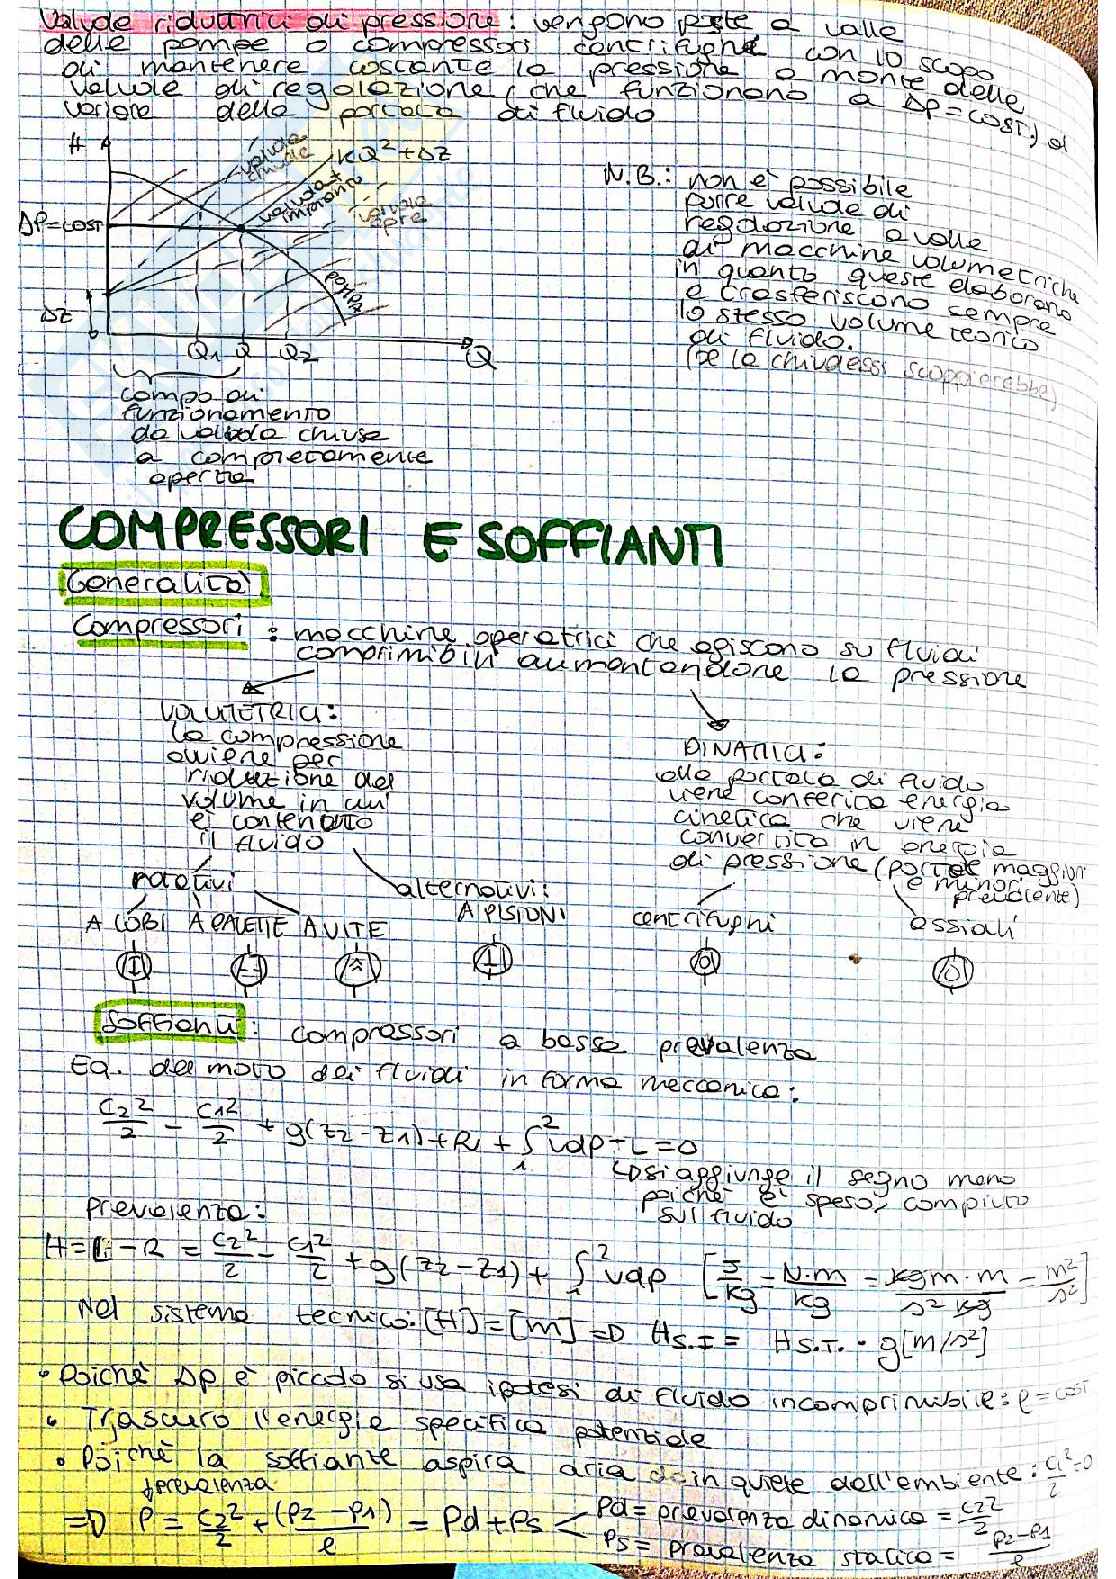 Valvole riduttrici di pressione: vengono poste a valle
delle pompe o compressori centrifughe con lo scopo
di mantenere costante la pressione a monte delle
valvole di regolazione (che funzionano a Δp=cost.) al
variare della portata di fluido
H
valvola chiusa
KQ²+ΔZ
valvola+ impianto
valvola aperta
ΔP=COST
POMPA
ΔZ
Q1 Q Q2
Q
campo di
funzionamento
da valvola chiusa
a completamente
aperta
N.B.: non è possibile
porre valvole di
regolazione a valle
di macchine volumetriche
in quanto queste elaborano
e trasferiscono sempre
lo stesso volume teorico
di fluido.
(se la chiudessi scoppierebbe)
COMPRESSORI E SOFFIANTI
Generalità
Compressori: macchine operatrici che agiscono su fluidi
comprimibili aumentandone la pressione
VOLUMETRICI:
la compressione
avviene per
riduzione del
volume in cui
è contenuto
il fluido
DINAMICI:
alla portata di fluido
viene conferita energia
cinetica che viene
convertita in energia
di pressione (portate maggiori
e minori
prevalente)
rotativi
alternativi:
A LOBI A PALETTE A VITE
A PISTONI
centrifughi
assiali
Soffianti: compressori a bassa prevalenza
Eq. del moto dei fluidi in forma meccanica:
c2²/2 - c1²/2 + g(z2-z1)+R+∫₁² vdp-L=0
si aggiunge il segno meno
poichè è speso, compiuto
sul fluido
prevalenza:
H=L-R = c2²/2 - c1²/2 + g(z2-z1)+ ∫₁² vdp [J/kg = N·m/kg = kgm·m/s² kg = m²/s²]
Nel sistema tecnico: [H]=[m] => HS.I = HS.T. · g[m/s²]
• Poichè Δp è piccolo si usa ipotesi di fluido incomprimibile: ρ=cost
• Trascuro l'energia specifica potenziale
• Poichè la soffiante aspira aria in quiete dall'ambiente: c1²/2=0
prevalenza
=> P = c2²/2 + (p2-p1)/ρ = Pd+Ps < Pd= prevalenza dinamica = c2²/2
Ps= prevalenza statica = p2-p1/ρ